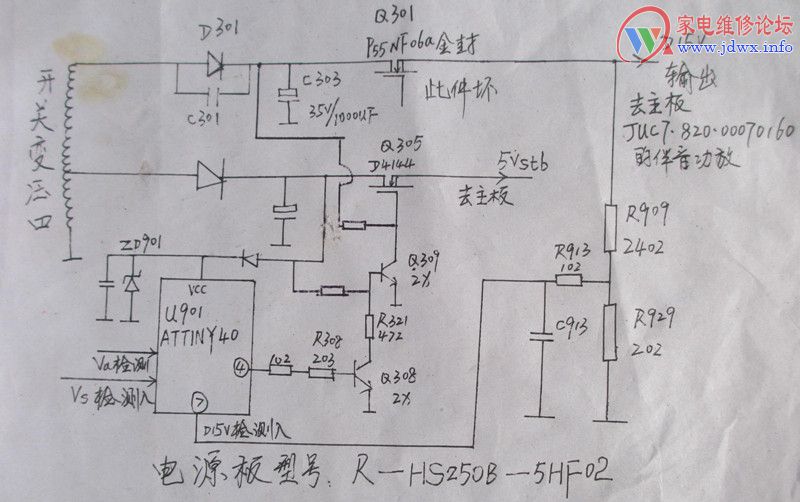 家电维修论坛
www.jdwx.info
Q301
D301
P55NF06a金封
D15V
输出
去主板
JUC7.820.00070160
的伴音功放
此件坏
C301
C303
35V/1000UF
开关变压口
Q305
D4144
5Vstb
去主板
R909
2402
R913
102
R929
202
C913
ZD901
VCC
U901
ATTINY40
Q309
2X
R321
472
R308
102
203
④
Q308
2X
Va检测
Vs检测入
⑦
D15V检测入
电源板型号: R-HS250B-5HF02